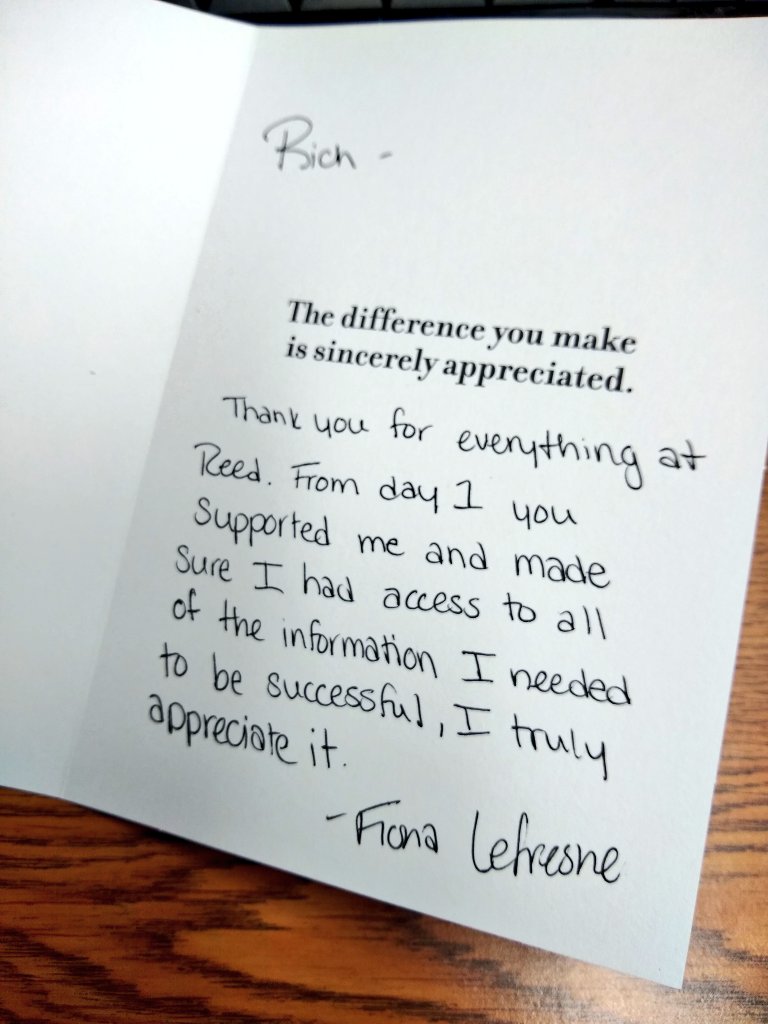 Rich -
The difference you make
is sincerely appreciated.
Thank you for everything at
Reed. From day 1 you
supported me and made
sure I had access to all
of the information I needed
to be successful, I truly
appreciate it.
- Fiona Lefresne